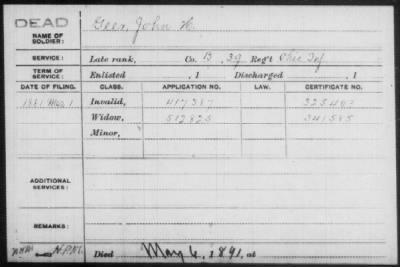 DEAD
NAME OF SOLDIER: Geer, John H.
SERVICE: Late rank, Co. B, 39 Reg't Ohio Inf
TERM OF SERVICE: Enlisted , 1 Discharged , 1
DATE OF FILING. CLASS. APPLICATION NO. LAW. CERTIFICATE NO.
1881 Mar 1 Invalid, 417387 325403
Widow, 512825 341585
Minor,
ADDITIONAL SERVICES:
REMARKS:
Died May 6, 1891, at